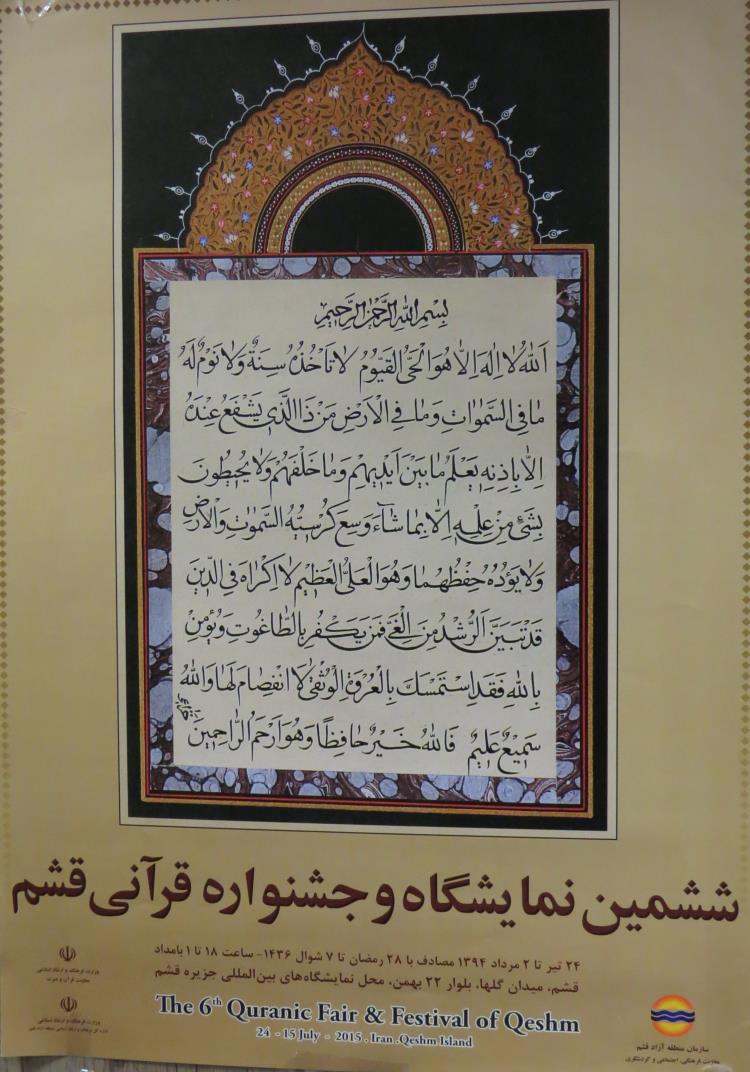 بِسْمِ اللهِ الرَّحْمٰنِ الرَّحِیمِ
اَللهُ لَا اِلٰهَ اِلَّا هُوَ الْحَیُّ الْقَیُّومُ لَا تَأْخُذُهُ سِنَةٌ وَلَا نَوْمٌ لَهُ
مَا فِی السَّمٰوَاتِ وَمَا فِی الْاَرْضِ مَنْ ذَا الَّذِی یَشْفَعُ عِنْدَهُ
اِلَّا بِاِذْنِهِ یَعْلَمُ مَا بَیْنَ اَیْدِیهِمْ وَمَا خَلْفَهُمْ وَلَا یُحِیطُونَ
بِشَیْءٍ مِنْ عِلْمِهِ اِلَّا بِمَا شَاءَ وَسِعَ كُرْسِیُّهُ السَّمٰوَاتِ وَالْاَرْضَ
وَلَا یَؤُدُهُ حِفْظُهُمَا وَهُوَ الْعَلِیُّ الْعَظِیمُ لَا اِكْرَاهَ فِی الدِّینِ
قَدْ تَبَیَّنَ الرُّشْدُ مِنَ الْغَیِّ فَمَنْ یَكْفُرْ بِالطَّاغُوتِ وَیُؤْمِنْ
بِاللهِ فَقَدِ اسْتَمْسَكَ بِالْعُرْوَةِ الْوُثْقٰی لَا انْفِصَامَ لَهَا وَاللهُ
سَمِیعٌ عَلِیمٌ فَاللهُ خَیْرٌ حَافِظًا وَهُوَ اَرْحَمُ الرَّاحِمِینَ
ششمین نمایشگاه و جشنواره قرآنی قشم
۲۴ تیر تا ۲ مرداد ۱۳۹۴ مصادف با ۲۸ رمضان تا ۷ شوال ۱۴۳۶- ساعت ۱۸ تا ۱ بامداد
قشم، میدان گلها، بلوار ۲۲ بهمن، محل نمایشگاه‌های بین‌المللی جزیره قشم
The 6th Quranic Fair & Festival of Qeshm
24 - 15 July - 2015 . Iran .Qeshm Island
وزارت فرهنگ و ارشاد اسلامی
معاونت قرآن و عترت
وزارت فرهنگ و ارشاد اسلامی
سازمان منطقه آزاد قشم
معاونت فرهنگی، اجتماعی و گردشگری